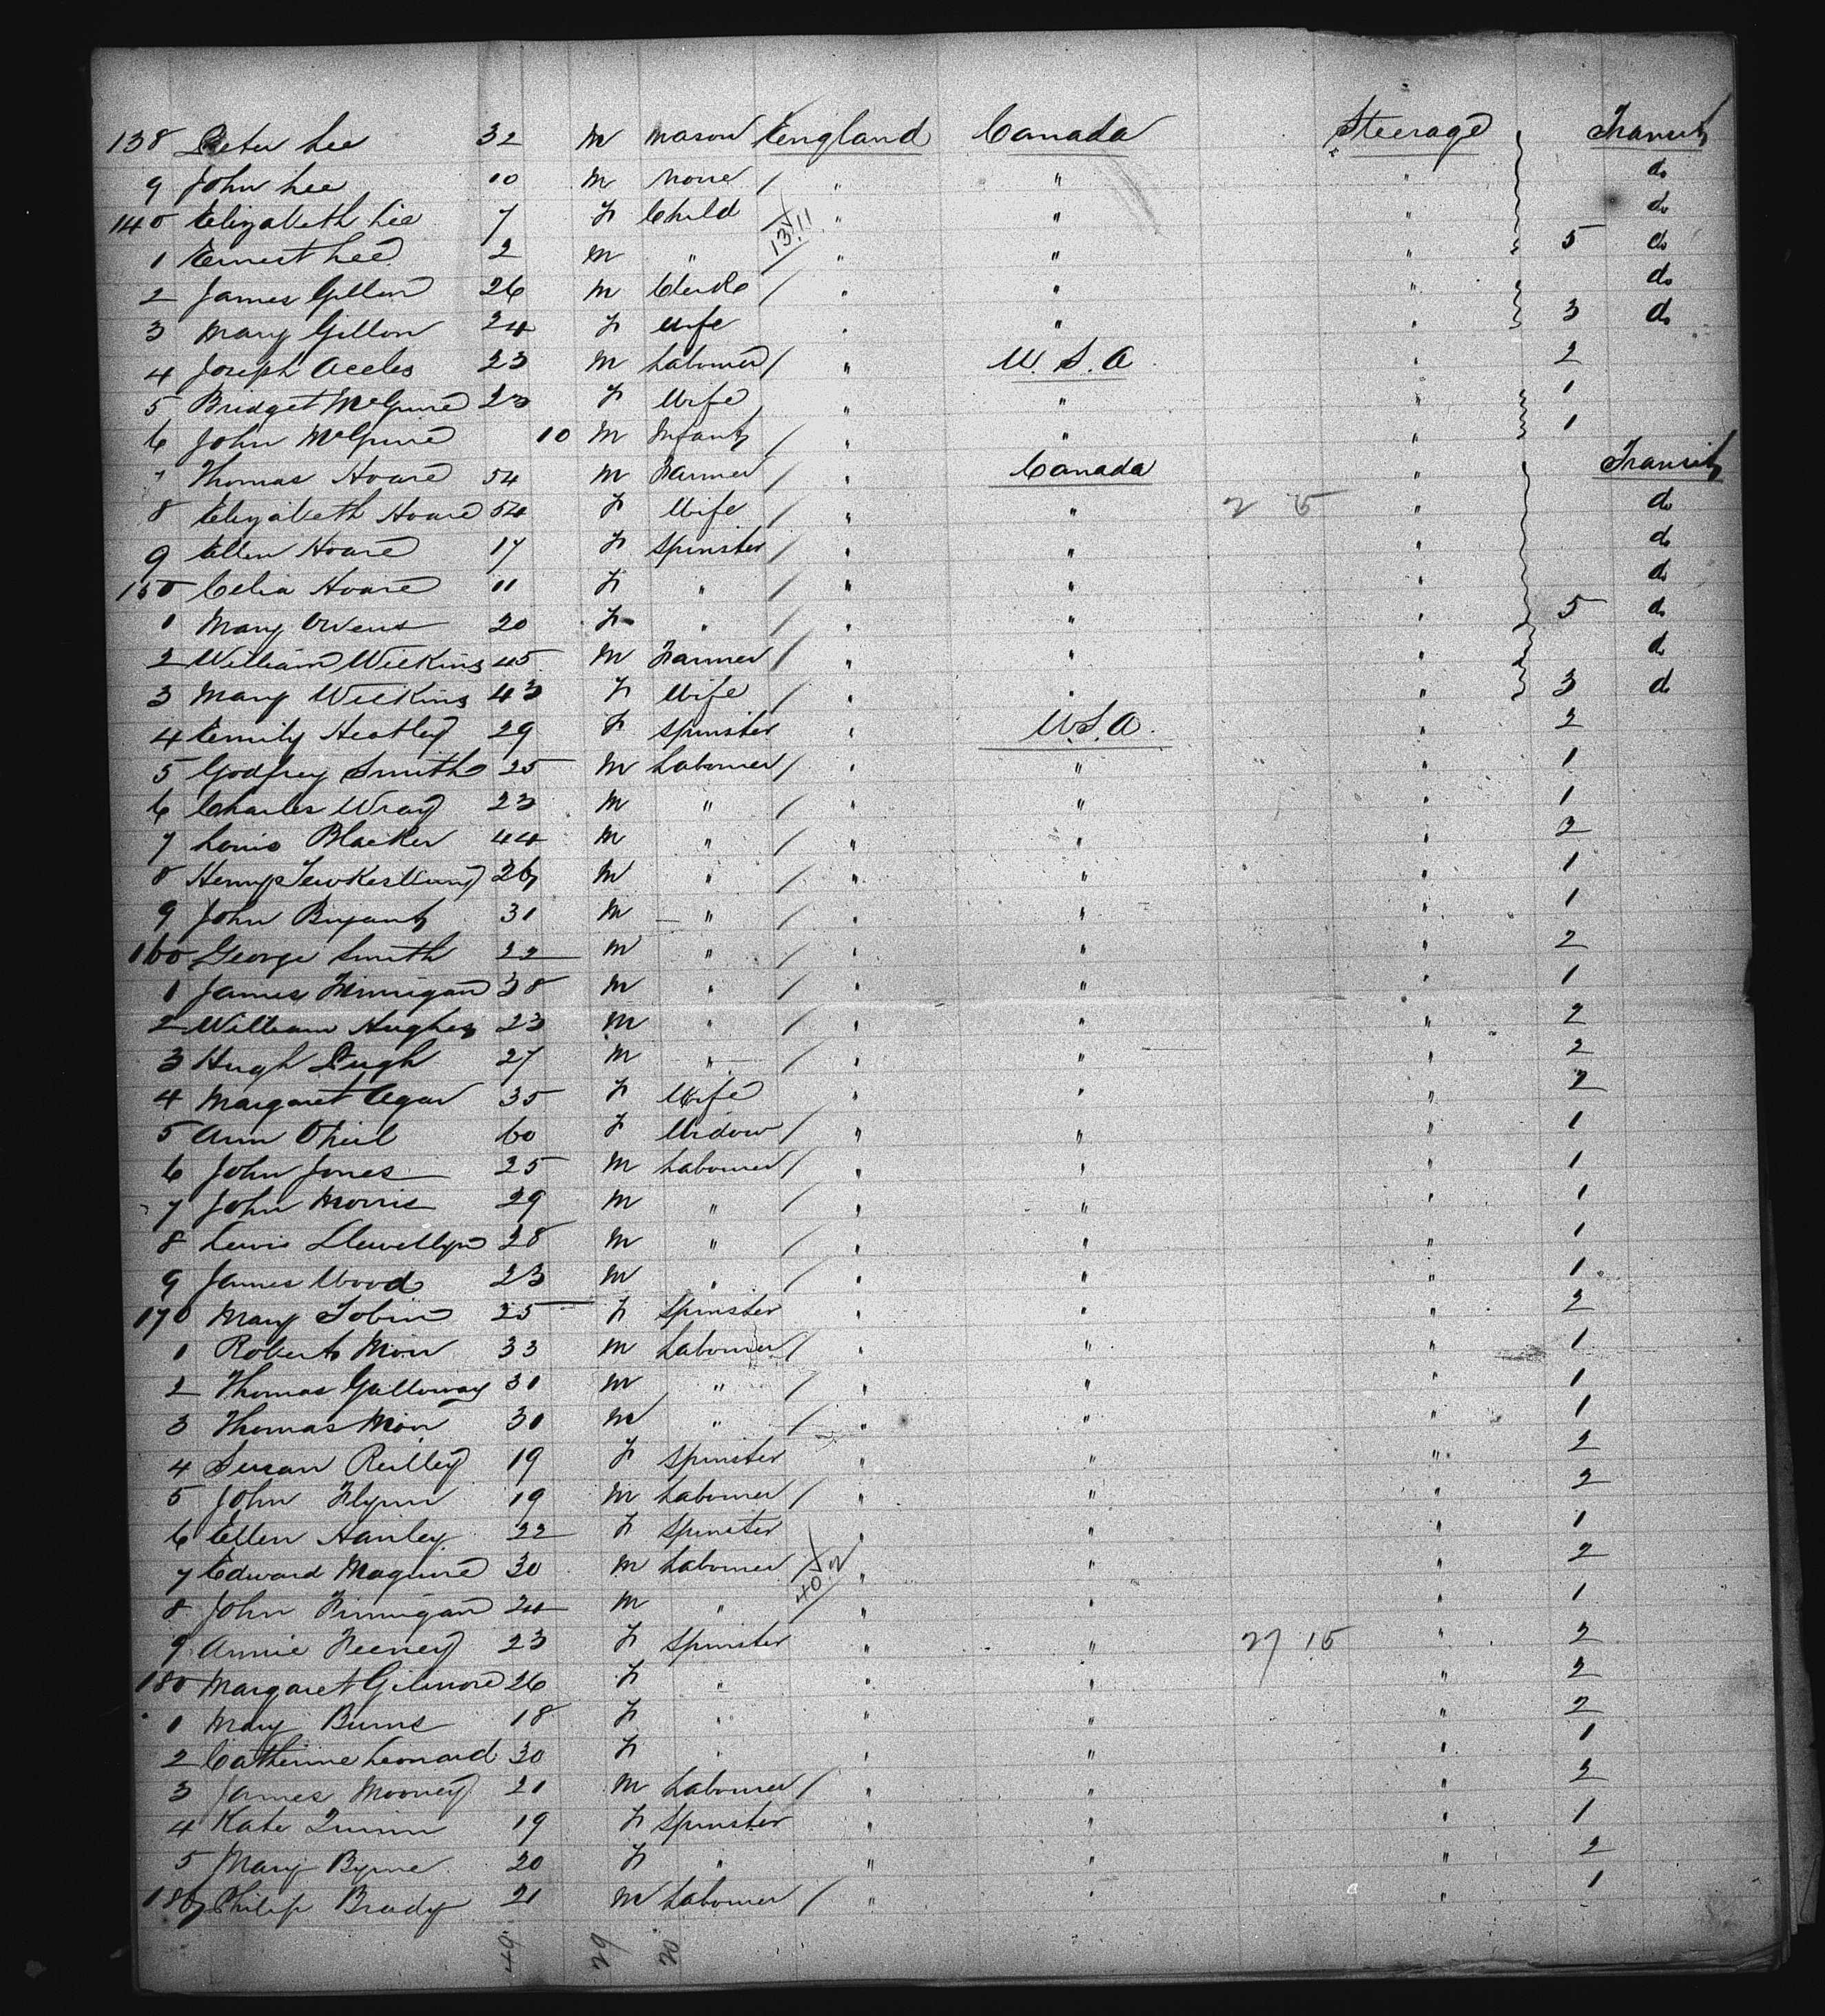 138 Peter Lee 32 M Mason England Canada Steerage Transit
9 John Lee 10 M None / " " " do
140 Elizabeth Lee 7 F Child 13.11 " " " do
1 Ernest Lee 2 M " " " " 5 do
2 James Gillon 26 M Clerk / " " " do
3 Mary Gillon 24 F Wife " " " 3 do
4 Joseph Accles 23 M Labourer / " U.S.A " 2
5 Bridget McGuire 23 F Wife " " " 1
6 John McGuire 10 M Infant / " " " 1
7 Thomas Hoare 54 M Farmer / " Canada " Transit
8 Elizabeth Hoare 54 F Wife / " " 2 5 " do
9 Ellen Hoare 17 F Spinster / " " " do
150 Celia Hoare 11 F " / " " " do
1 Mary Owens 20 F " / " " " 5 do
2 William Wilkins 45 M Farmer / " " " do
3 Mary Wilkins 43 F Wife / " " " 3 do
4 Emily Heatley 29 F Spinster " U.S.A. " 2
5 Godfrey Smith 25 M Labourer / " " " 1
6 Charles Wray 23 M " / " " " 1
7 Louis Blacker 44 M " / " " " 2
8 Henry Tewkesbury 26 M " / " " " 1
9 John Bryant 31 M " / " " " 1
160 George Smith 22 M " / " " " 2
1 James Finnigan 38 M " / " " " 1
2 William Hughes 23 M " / " " " 2
3 Hugh Pugh 27 M " / " " " 2
4 Margaret Agar 35 F Wife " " " 2
5 Ann O'Neil 60 F Widow / " " " 1
6 John Jones 25 M Labourer / " " " 1
7 John Morris 29 M " / " " " 1
8 Lewis Llewellyn 28 M " / " " " 1
9 James Wood 23 M " / " " " 1
170 Mary Tobin 25 F Spinster " " " 2
1 Robert Moir 33 M Labourer / " " " 1
2 Thomas Galloway 31 M " / " " " 1
3 Thomas Moir 30 M " / " " " 1
4 Susan Reilley 19 F Spinster " " " 2
5 John Flynn 19 M Labourer / " " " 2
6 Ellen Hanley 22 F Spinster " " " 1
7 Edward Maguire 30 M Labourer / 40.2 " " " 2
8 John Finnigan 24 M " " " " 1
9 Annie Feeney 23 F Spinster " " 27 15 " 2
180 Margaret Gilmore 26 F " " " " 2
1 Mary Burns 18 F " " " " 2
2 Catherine Leonard 30 F " " " " 1
3 James Mooney 21 M Labourer / " " " 2
4 Kate Quinn 19 F Spinster " " " 1
5 Mary Byrne 20 F " " " " 2
186 Philip Brady 21 M Labourer / " " " 1
49 29 20